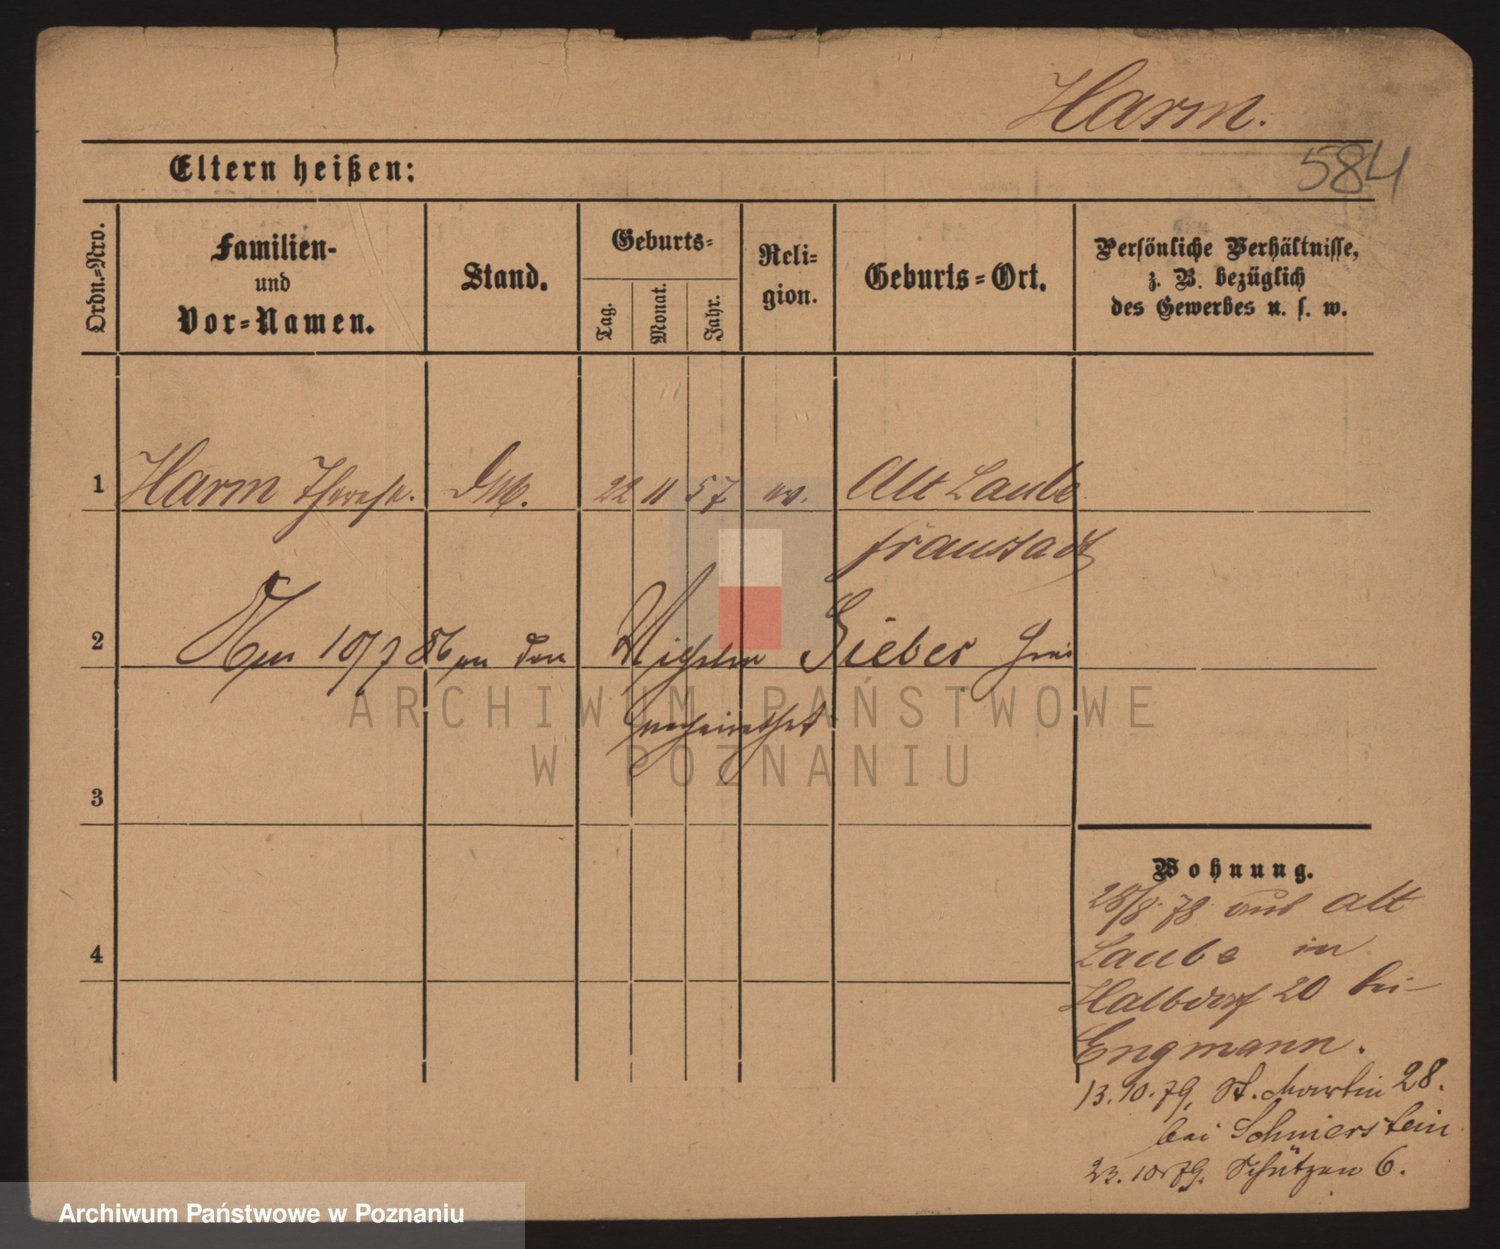 Harm.
584
Eltern heißen:
Ordn.=Nro.
Familien-
und
Vor=Namen.
Stand.
Geburts=
Tag.
Monat.
Jahr.
Reli=
gion.
Geburts=Ort.
Persönliche Verhältnisse,
z. B. bezüglich
des Gewerbes u. s. w.
1 Harm 22 11 57 ev. Alt Laube
Fraustadt
2 10/7 86 an den Wilhelm Sieber hier
verheirathet
3
Wohnung.
28/8. 78 aus Alt
Laube in
4
Halbdorf 20 bei
Engmann.
13.10.79, St. Martin 28.
bei Schmerstein
23.10.79. Schützen 6.
ARCHIWUM PAŃSTWOWE
W POZNANIU
Archiwum Państwowe w Poznaniu